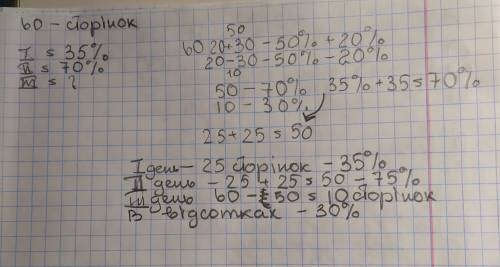 60 - сторінок
I = 35%
II = 70%
III = ?
50
60 20+30 - 50% + 20%
20 - 30 - 50% - 20%
10
50 - 70% 35% + 35 = 70%
10 - 30%
25 + 25 = 50
I день - 25 сторінок - 35%
II день - 25 + 25 = 50 - 75%
III день 60 - 50 = 10 сторінок
В відсотках - 30%